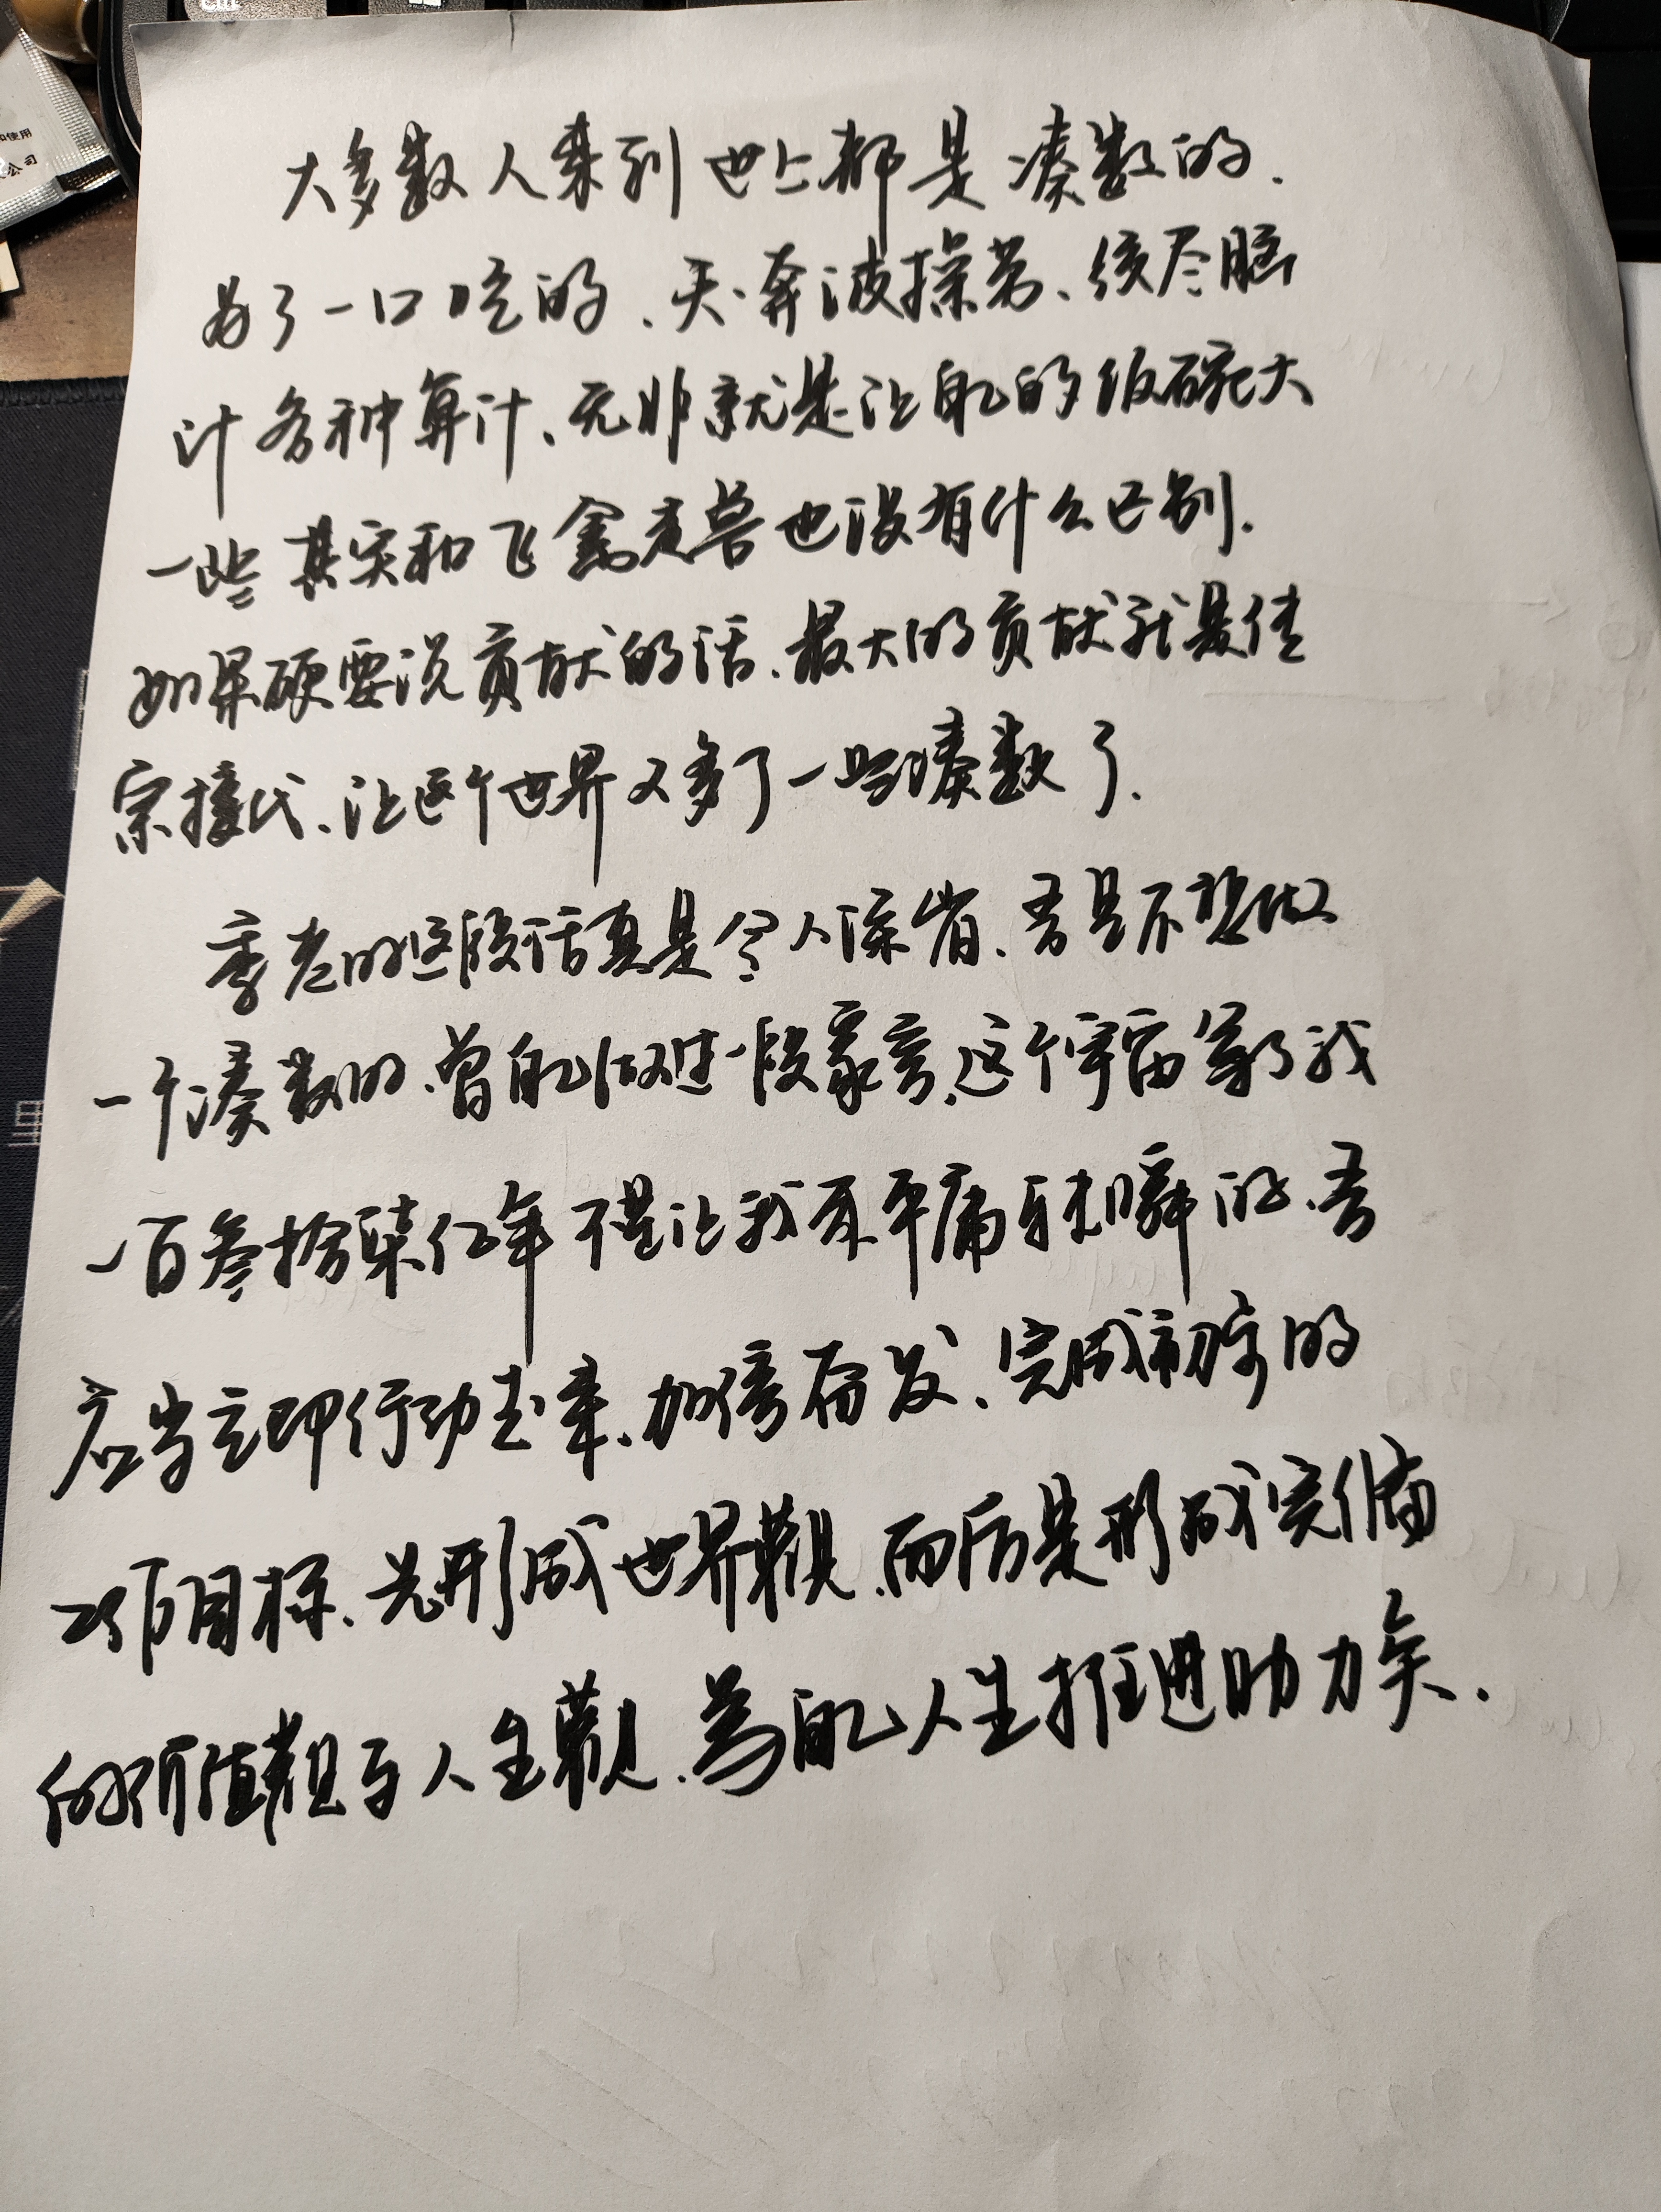 大多数人来到世上都是凑数的.
为了一口吃的、天天奔波操劳、绞尽脑
计各种算计、无非就是让自己的饭碗大
一些其实和飞禽走兽也没有什么区别.
如果硬要说贡献的话、最大的贡献就是传
宗接代、让这个世界又多了一些凑数了.
季老的这段话真是令人深省、吾是不想做
一个凑数的、曾自己做过一段豪言、这个宇宙等了我
一百叁拾柒亿年不是让我来平庸的、吾
应当立即行动起来、加倍奋发、完成初步的
2项目标、先形成世界觀、而后是形成完備
的价值觀与人生觀、為自己人生推進助力矣.
里